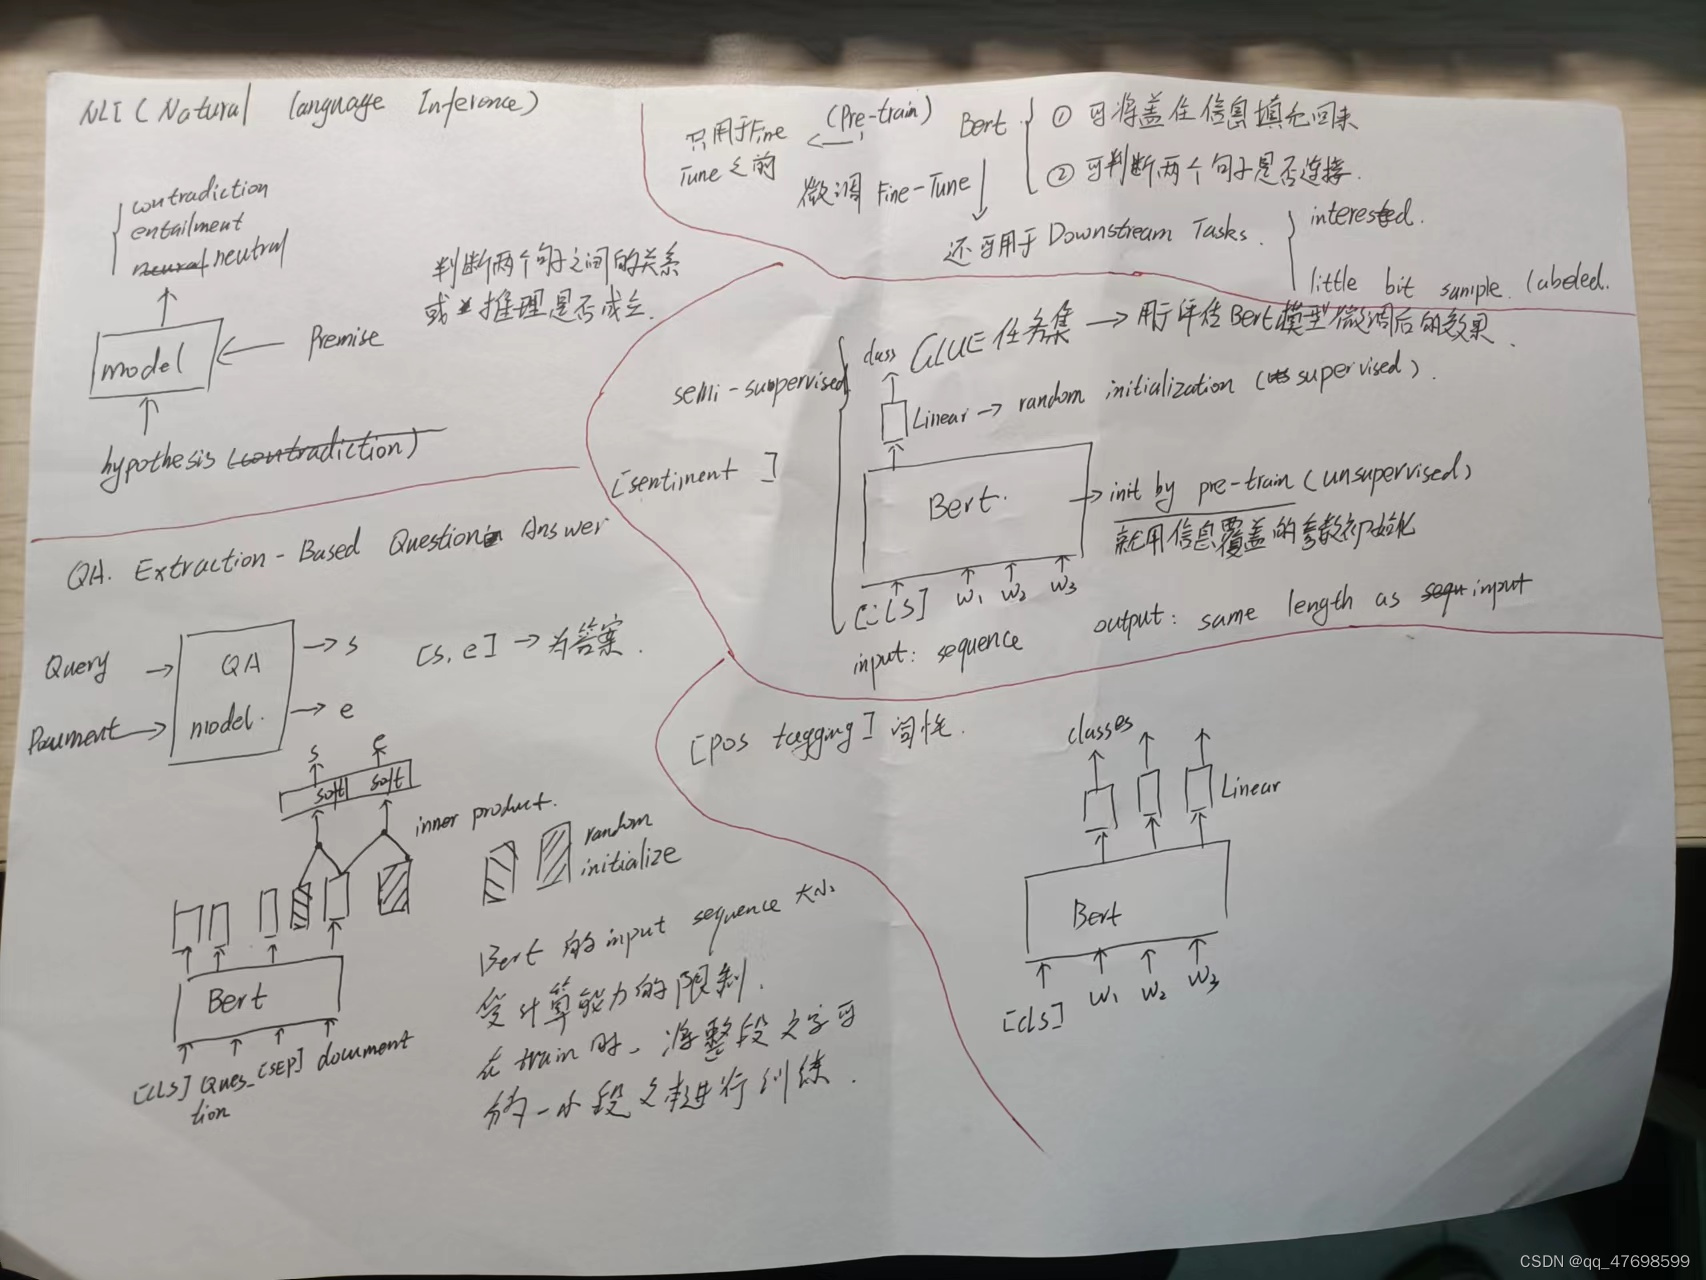 NLI (Natural language Inference)
contradiction
entailment
neutral
判断两个句子之间的关系
或 推理是否成立.
model
Premise
hypothesis (contradiction)
(Pre-train)
只用于Fine
Tune之前
Bert
① 可将盖住信息填充回来
② 可判断两个句子是否连接.
微调 Fine-Tune
还可用于 Downstream Tasks.
interested.
little bit sample labeled.
GLUE任务集 → 用于评估Bert模型微调后的效果.
class
semi-supervised
Linear → random initialization (supervised).
[sentiment ]
Bert.
→ init by pre-train (unsupervised)
就用信息覆盖的参数初始化
[CLS] w1 w2 w3
input: sequence
output: same length as input
QA. Extraction-Based Question Answer
Query
QA
model.
→ s
→ e
[s, e] → 为答案.
Document
s e
soft soft
inner product.
random
initialize
Bert
[CLS] Ques-
tion
[SEP] document
Bert 的 input sequence 大小
受计算能力的限制.
在 train 时, 将整段文字可
分为一小段文本进行训练.
[POS tagging] 词性.
classes
Linear
Bert
[CLS] w1 w2 w3
CSDN @qq_47698599